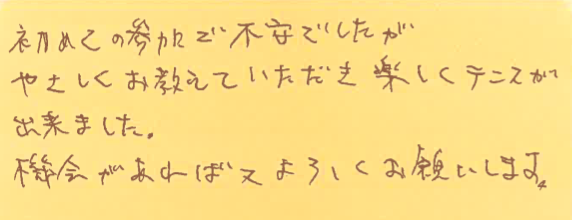 初めての参加で不安でしたが
やさしくお教えていただき楽しくテニスが
出来ました。
機会があれば又よろしくお願いします。